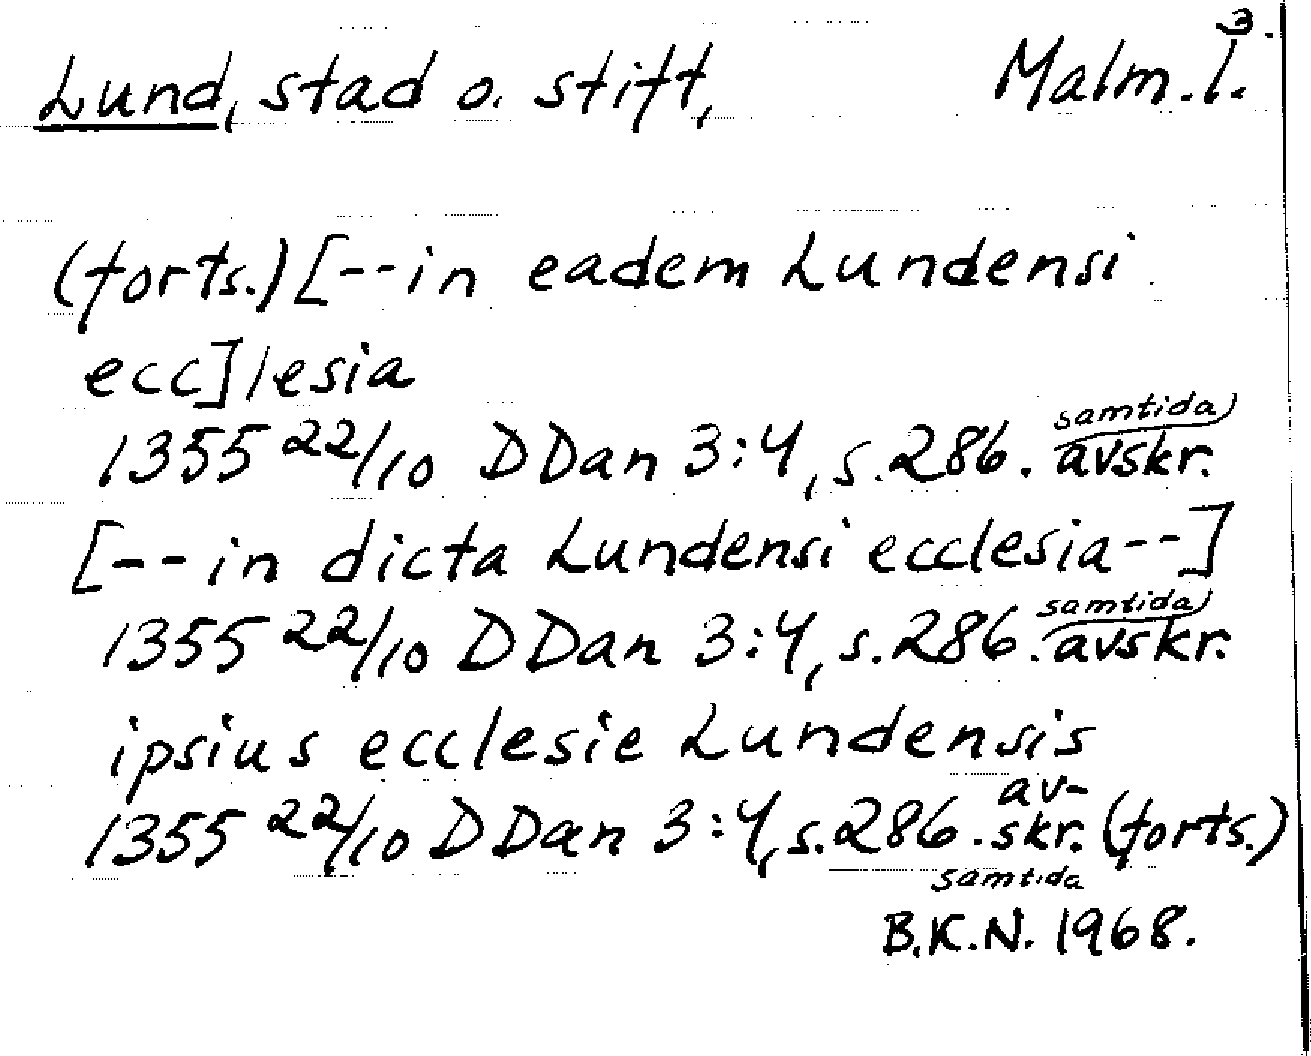 3.
Lund, stad o. stift, Malm. l.
(forts.) [--in eadem Lundensi
ecc]lesia
1355 22/10 DDan 3:4, s. 286. samtida avskr.
[--in dicta Lundensi ecclesia--]
1355 22/10 DDan 3:4, s. 286. samtida avskr.
ipsius ecclesie Lundensis
1355 22/10 DDan 3:4, s. 286. samtida av-
skr. (forts.)
B.K.N. 1968.